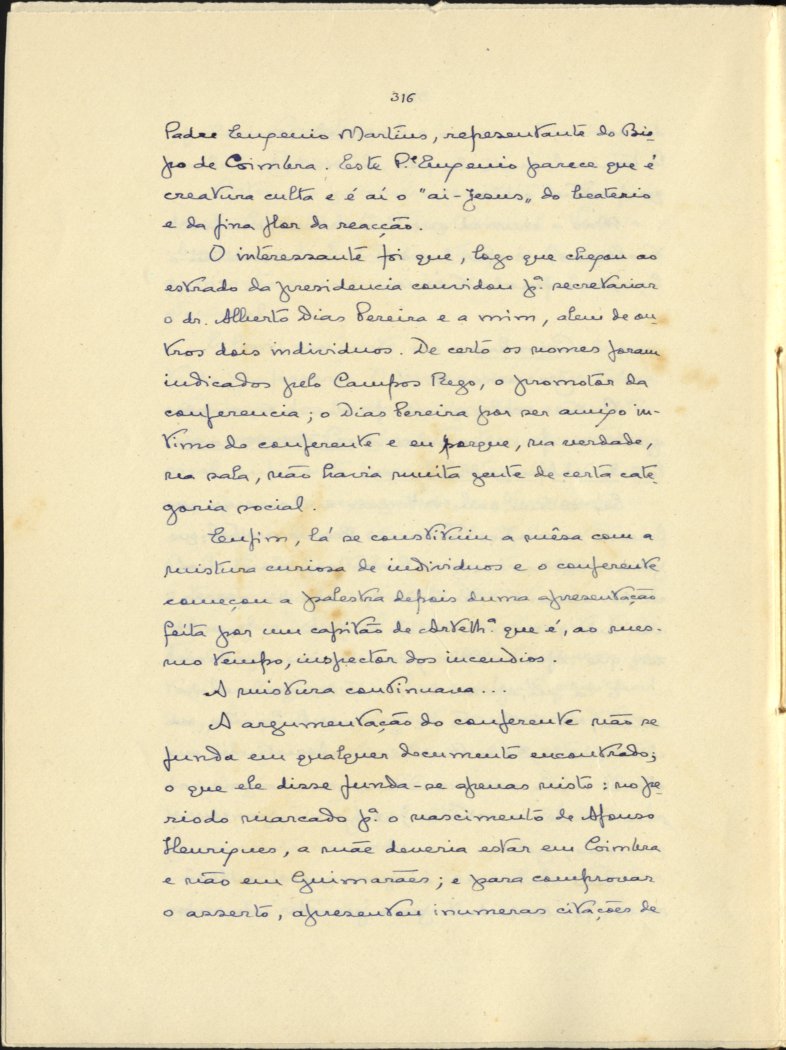 316
Padre Eugenio Martins, representante do Bis-
po de Coimbra. Este P.e Eugenio parece que é
creatura culta e é aí o "ai-Jesus„ do beaterio
e da fina flor da reacção.
O interessante foi que, logo que chegou ao
estrado da presidencia convidou p.a secretariar
o dr. Alberto Dias Pereira e a mim, alem de ou-
tros dois individuos. De certo os nomes foram
indicados pelo Campos Rego, o promotor da
conferencia; o Dias Pereira por ser amigo in-
timo do conferente e eu porque, na verdade,
na sala, não havia muita gente de certa cate-
goria social.
Enfim, lá se constituiu a mêsa com a
mistura curiosa de individuos e o conferente
começou a palestra depois duma apresentação
feita por um capitão de Artelh.a que é, ao mes-
mo tempo, inspector dos incendios.
A mistura continuava...
A argumentação do conferente não se
funda em qualquer documento encontrado;
o que ele disse funda-se apenas nisto: no pe-
riodo marcado p.a o nascimento de Afonso
Henriques, a mãe deveria estar em Coimbra
e não em Guimarães; e para comprovar
o asserto, apresentou inumeras citações de